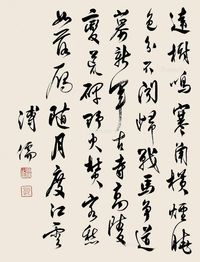 遠樹鳴寒角橫煙晚
色分不聞歸戰馬爭道
募新軍古寺高陵
變荒碑野火焚客愁
如落雁隨月度江雲
溥儒